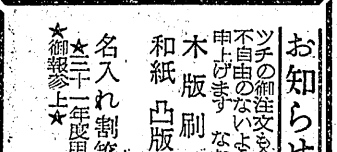 お知らせ
ツチの御注文も
不自由のないよ
申上げます な
木版刷
和紙 凸版
名入れ割
★三十一年度用
★御報参上★